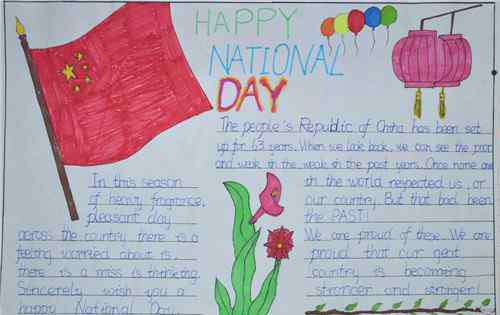 HAPPY
NATIONAL
DAY
The people's Republic of China has been set
up for 63 years. When we look back, we can see the poor
and weak in the weak in the past years. Once none
in the world respected us, or
our country. But that had been
the PAST!
We are proud of these. We are
proud that our
country is becoming
stronger and stronger!
In this season
of heavy fragrance,
pleasant day
across the country there is a
feeling worried about is,
there is a miss is thinking.
Sincerely wish you a
happy National Day.